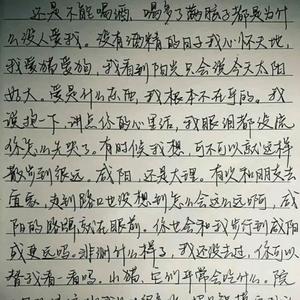 还是不能喝酒，喝多了满脑子都是为什
么没人爱我。没有酒精的日子我心怀天地，
我爱猫爱狗，我看到阳光只会说今天太阳
好大。爱是什么东西，我根本不在乎的。我
说抱一下，讲点你的心里话，我眼泪都没流
你怎么先哭了。有时候我想，可不可以就这样
散步到很远。咸阳，还是大理。有次和朋友去
直走，走到路口也没想到怎么会这么远啊，咸
阳的路牌就在眼前。你也会和我步行到咸阳
或更远吗。非洲什么样子，我还没去过，你可以
替我看一看吗，小猫，它们平常会吃什么。院